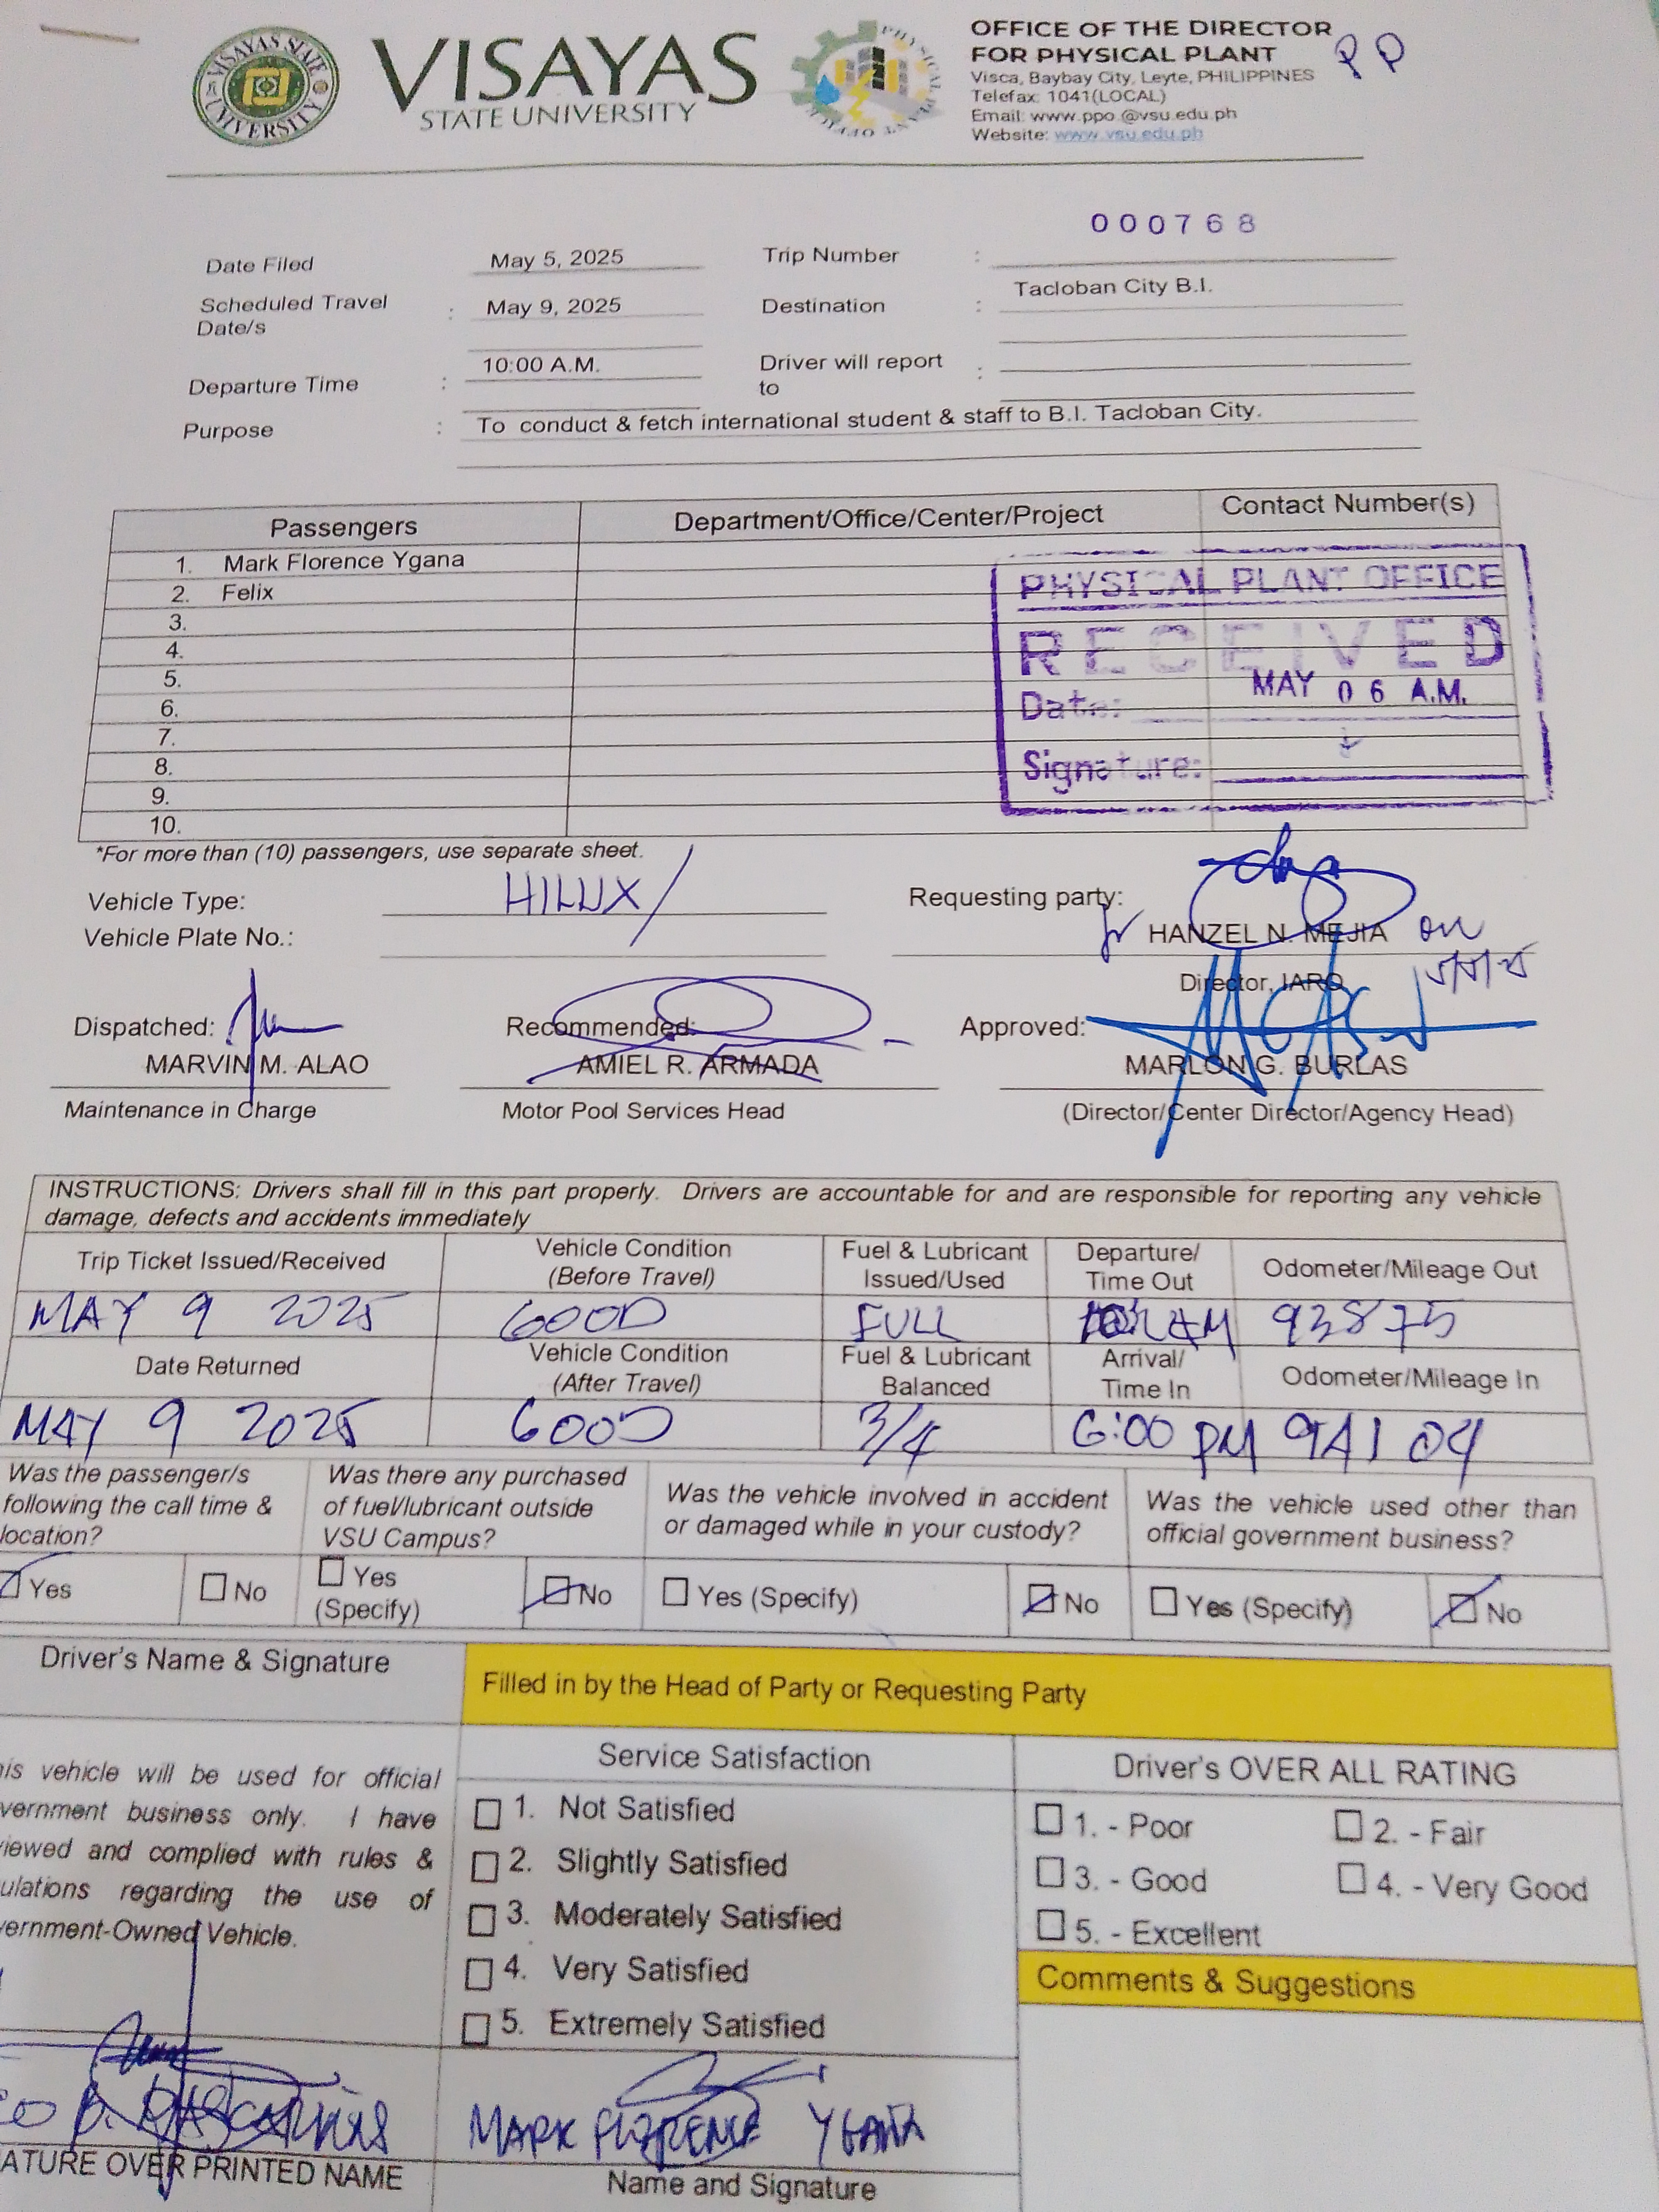 VISAYAS STATE UNIVERSITY
VISAYAS
STATE UNIVERSITY
OFFICE OF THE DIRECTOR
FOR PHYSICAL PLANT
Visca, Baybay City, Leyte, PHILIPPINES
Telefax: 1041(LOCAL)
Email: www.ppo.@vsu.edu.ph
Website: www.vsu.edu.ph
000768
Date Filed May 5, 2025 Trip Number :
Scheduled Travel Date/s : May 9, 2025 Destination : Tacloban City B.I.
Departure Time : 10:00 A.M. Driver will report to :
Purpose : To conduct & fetch international student & staff to B.I. Tacloban City.
Passengers Department/Office/Center/Project Contact Number(s)
1. Mark Florence Ygana
2. Felix
3.
4.
5.
6.
7.
8.
9.
10.
PHYSICAL PLANT OFFICE
RECEIVED
Date: MAY 06 A.M.
Signature:
*For more than (10) passengers, use separate sheet.
Vehicle Type: HILUX
Vehicle Plate No.:
Requesting party:
HANZEL N. MEJIA
Director, IARO
Dispatched: Recommended: Approved:
MARVIN M. ALAO AMIEL R. ARMADA MARLON G. BURLAS
Maintenance in Charge Motor Pool Services Head (Director/Center Director/Agency Head)
INSTRUCTIONS: Drivers shall fill in this part properly. Drivers are accountable for and are responsible for reporting any vehicle
damage, defects and accidents immediately
Trip Ticket Issued/Received Vehicle Condition (Before Travel) Fuel & Lubricant Issued/Used Departure/ Time Out Odometer/Mileage Out
MAY 9 2025 GOOD FULL 93875
Date Returned Vehicle Condition (After Travel) Fuel & Lubricant Balanced Arrival/ Time In Odometer/Mileage In
MAY 9 2025 GOOD 3/4 6:00 PM 94104
Was the passenger/s following the call time & location?
Was there any purchased of fuel/lubricant outside VSU Campus?
Was the vehicle involved in accident or damaged while in your custody?
Was the vehicle used other than official government business?
Yes No Yes (Specify) No Yes (Specify) No Yes (Specify) No
Driver's Name & Signature
Filled in by the Head of Party or Requesting Party
vehicle will be used for official
business only. I have
and complied with rules &
regarding the use of
Vehicle.
Service Satisfaction
1. Not Satisfied
2. Slightly Satisfied
3. Moderately Satisfied
4. Very Satisfied
5. Extremely Satisfied
Driver's OVER ALL RATING
1. - Poor 2. - Fair
3. - Good 4. - Very Good
5. - Excellent
Comments & Suggestions
MARK FLORENCE YGANA
OVER PRINTED NAME
Name and Signature